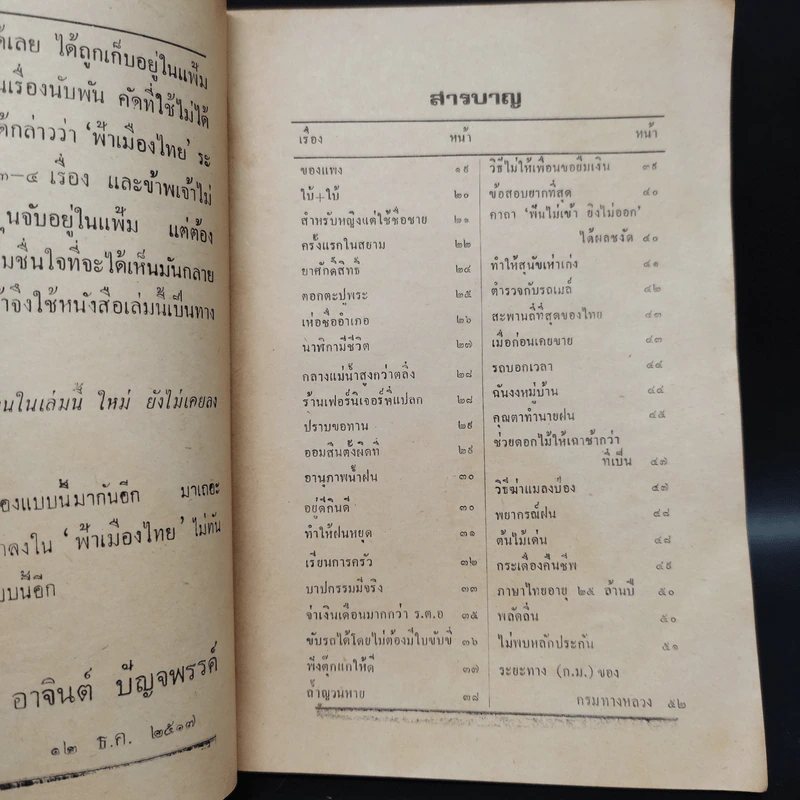 ด้เลย ได้ถูกเก็บอยู่ในแฟ้ม
นเรื่องนับพัน คัดที่ใช้ไม่ได้
ด้กล่าวว่า ‘ฟ้าเมืองไทย’ ระ
๓–๔ เรื่อง และข้าพเจ้าไม่
ุนจับอยู่ในแฟ้ม แต่ต้อง
มชื่นใจที่จะได้เห็นมันกลาย
จ้าจึงใช้หนังสือเล่มนี้เป็นทาง
นในเล่มนี้ ใหม่ ยังไม่เคยลง
องแบบนี้มากันอีก มาเถอะ
าลงใน ‘ฟ้าเมืองไทย’ ไม่ทัน
บบนี้อีก
อาจินต์ ปัญจพรรค์
๑๒ ธ.ค. ๒๕๑๗
สารบาญ
เรื่อง หน้า
ของแพง ๑๙
ใบ้+ใบ้ ๒๐
สำหรับหญิงแต่ใช้ชื่อชาย ๒๑
ครั้งแรกในสยาม ๒๒
ยาศักดิ์สิทธิ์ ๒๔
ตอกตะปูพระ ๒๕
เห่อชื่ออำเภอ ๒๖
นาฬิกามีชีวิต ๒๗
กลางแม่น้ำสูงกว่าตลิ่ง ๒๘
ร้านเฟอร์นิเจอร์ที่แปลก ๒๘
ปราบขอทาน ๒๙
ออมสินตั้งผิดที่ ๒๙
อานุภาพน้ำฝน ๓๐
อยู่ดีกินดี ๓๐
ทำให้ฝนหยุด ๓๑
เรียนการครัว ๓๒
บาปกรรมมีจริง ๓๓
จ่าเงินเดือนมากกว่า ร.ต.อ ๓๕
ขับรถได้โดยไม่ต้องมีใบขับขี่ ๓๖
ฟังตุ๊กแกให้ดี ๓๗
ลำญวนหาย ๓๘
หน้า
วิธีไม่ให้เพื่อนขอยืมเงิน ๓๙
ข้อสอบยากที่สุด ๔๐
คาถา ‘ฟันไม่เข้า ยิงไม่ออก’
ได้ผลชงัด ๔๐
ทำให้สุนัขเห่าเก่ง ๔๑
ตำรวจกับรถเมล์ ๔๒
สะพานถี่ที่สุดของไทย ๔๓
เมื่อก่อนเคยขาย ๔๓
รถบอกเวลา ๔๔
ฉันงงหมู่บ้าน ๔๔
คุณตาทำนายฝน ๔๕
ช่วยดอกไม้ให้เฉาช้ากว่า
ที่เป็น ๔๗
วิธีฆ่าแมลงป่อง ๔๗
พยากรณ์ฝน ๔๘
ต้นไม้เด่น ๔๘
กระเดื่องคืนชีพ ๔๙
ภาษาไทยอายุ ๒๕ ล้านปี ๕๐
พลัดถิ่น ๕๐
ไม่พบหลักประกัน ๕๑
ระยะทาง (ก.ม.) ของ
กรมทางหลวง ๕๒